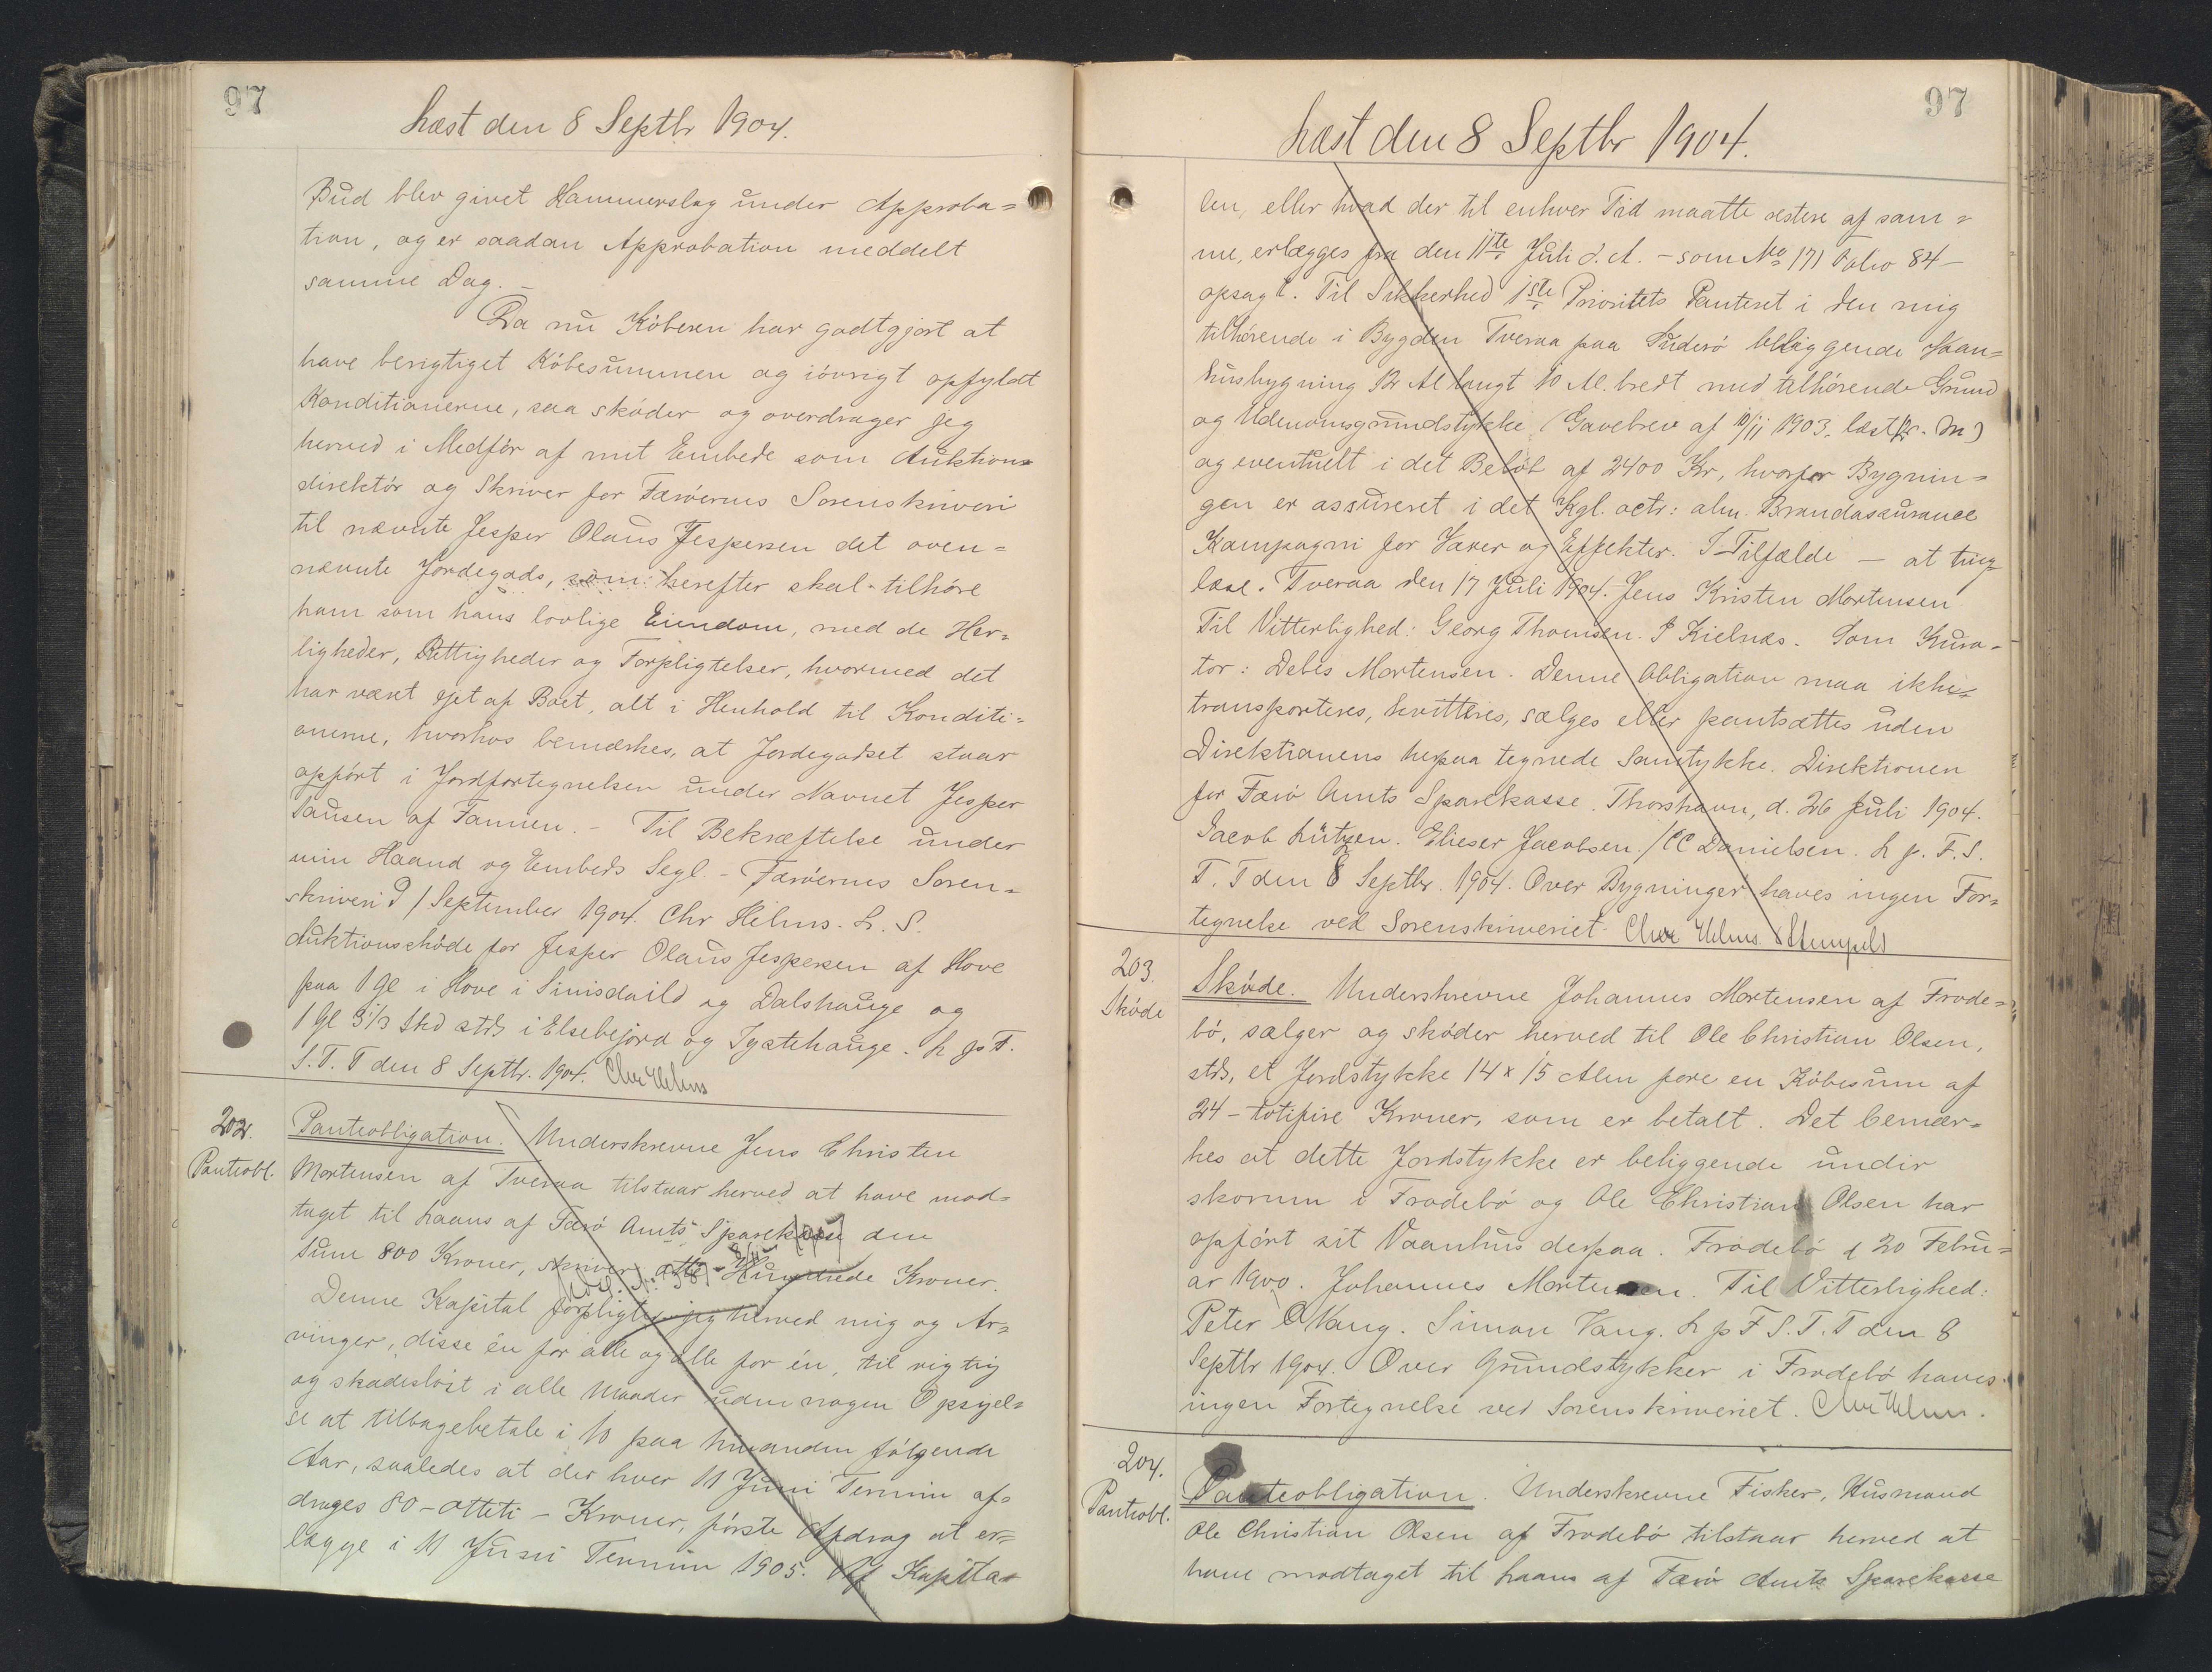 97
Læst den 8 Septbr 1904.
Bud blev givet Hammerslag under Approba=
tion, og er saadan Approbation meddelt
samme Dag. –
Da nu Köberen har godtgjort at
have berigtiget Köbesummen og iövrigt opfyldt
Konditionerne, saa sköder og overdrager jeg
herved i Medför af mit Embede som Auktions=
direktör og Skriver for Færöernes Sorenskriveri
til nævnte Jesper Olaus Jespersen det oven=
nævnte Jordegods, som herefter skal tilhöre
ham som hans lovlige Eiendom, med de Her=
ligheder, Rettigheder og Forpligtelser, hvormed det
har været ejet af Boet, alt i Henhold til Konditi=
onerne, hvorhos bemærkes, at Jordegodset staar
opfört i Jordfortegnelsen under Navnet Jesper
Jansen af Famien. – Til Bekræftelse under
min Haand og Embeds Segl. – Færöernes Soren=
skriveri d 1 September 1904. Chr Helms. L. S.
Auktionsskÿde for Jesper Olaus Jespersen af Hove
paa 1 Gl i Hove i Sinisdaild og Dalshauge og
1 Gl 3 1/3 Skd stds i Elsebejord og Systehauge. L p F.
S. T. T den 8 Septbr. 1904. Chr Helms
202.
Panteobl.
Panteobligation. Underskrevne Jens Christen
Mortensen af Tveraa tilstaar herved at have mod=
taget til Laans af Færö Amts Sparekasse den
Sum 800 Kroner, skriver otte Hundrede Kroner.
Denne Kapital forpligter jeg herved mig og Ar=
vinger, disse én for alle og alle for én, til rigtig
og skadeslöst i alle Maader uden nogen Opsigel=
se at tilbagebetale i 10 paa hinanden fölgende
Aar, saaledes at der hver 11 Juni Termin af=
drages 80 – otteti – Kroner, förste Afdrag at er=
lægge i 11 Juni Termin 1905. Af Kapita=
97
Læst den 8 Septbr 1904.
len, eller hvad der til enhver Tid maatte restere af sam=
me, erlægges fra den 11te Juli d. A. – som No 171 Folio 84 –
opsagt. Til Sikkerhed 1ste Prioritets Panteret i den mig
tilhörende i Bygden Tveraa paa Suderö beliggende Vaan=
husbygning 12 Al langt 10 Al. bredt med tilhörende Grund
og Udenomsgrundstykke (Gavebrev af 10/11 1903, læst
og eventuelt i det Belöb af 2400 Kr, hvorfor Bygnin=
gen er assureret i det Kgl. octr: alm. Brandassurance
Kompagni for Varer og Effekter. I Tilfælde – at ting
læse. Tveraa den 17 Juli 1904. Jens Kristen Mortensen
Til Vitterlighed: Georg Thomsen. P Kielnæs. Som Kura=
tor: Debes Mortensen. Denne Obligation maa ikke
transporteres, kvitteres, sælges eller pantsættes uden
Direktionens herpaa tegnede Samtykke. Direktionen
for Færö Amts Sparekasse. Thorshavn, d. 26 Juli 1904.
Jacob Lützen. Elieser Jacobsen. / CC Danielsen. L p. F. S.
T. T den 8 Septbr. 1904. Over Bygninger haves ingen For=
tegnelse ved Sorenskriveriet. Chr Helms.
203.
Sköde
Sköde. Underskrevne Johannes Mortensen af Frode=
bö, sælger og sköder herved til Ole Christian Olsen,
stds, et Jordstykke 14 x 15 Alen fore en Köbesum af
24 – totifire Kroner, som er betalt. Det bemær=
kes at dette Jordstykke er beliggende undir
skorum i Frodebö og Ole Christian Olsen har
opfört sit Vaanhus derpaa. Frodebö d 20 Febru=
ar 1900. Johannes Mortensen. Til Vitterlighed:
Peter O Vang. Simon Vang. L p F S. T. T den 8
Septbr 1904. Over Grundstykker i Frodebö haves
ingen Fortegnelse ved Sorenskriveriet. Chr Helms.
204.
Panteobl.
Panteobligation. Underskrevne Fisker, Husmand
Ole Christian Olsen af Frodebö tilstaar herved at
have modtaget til Laans af Færö Amts Sparekasse